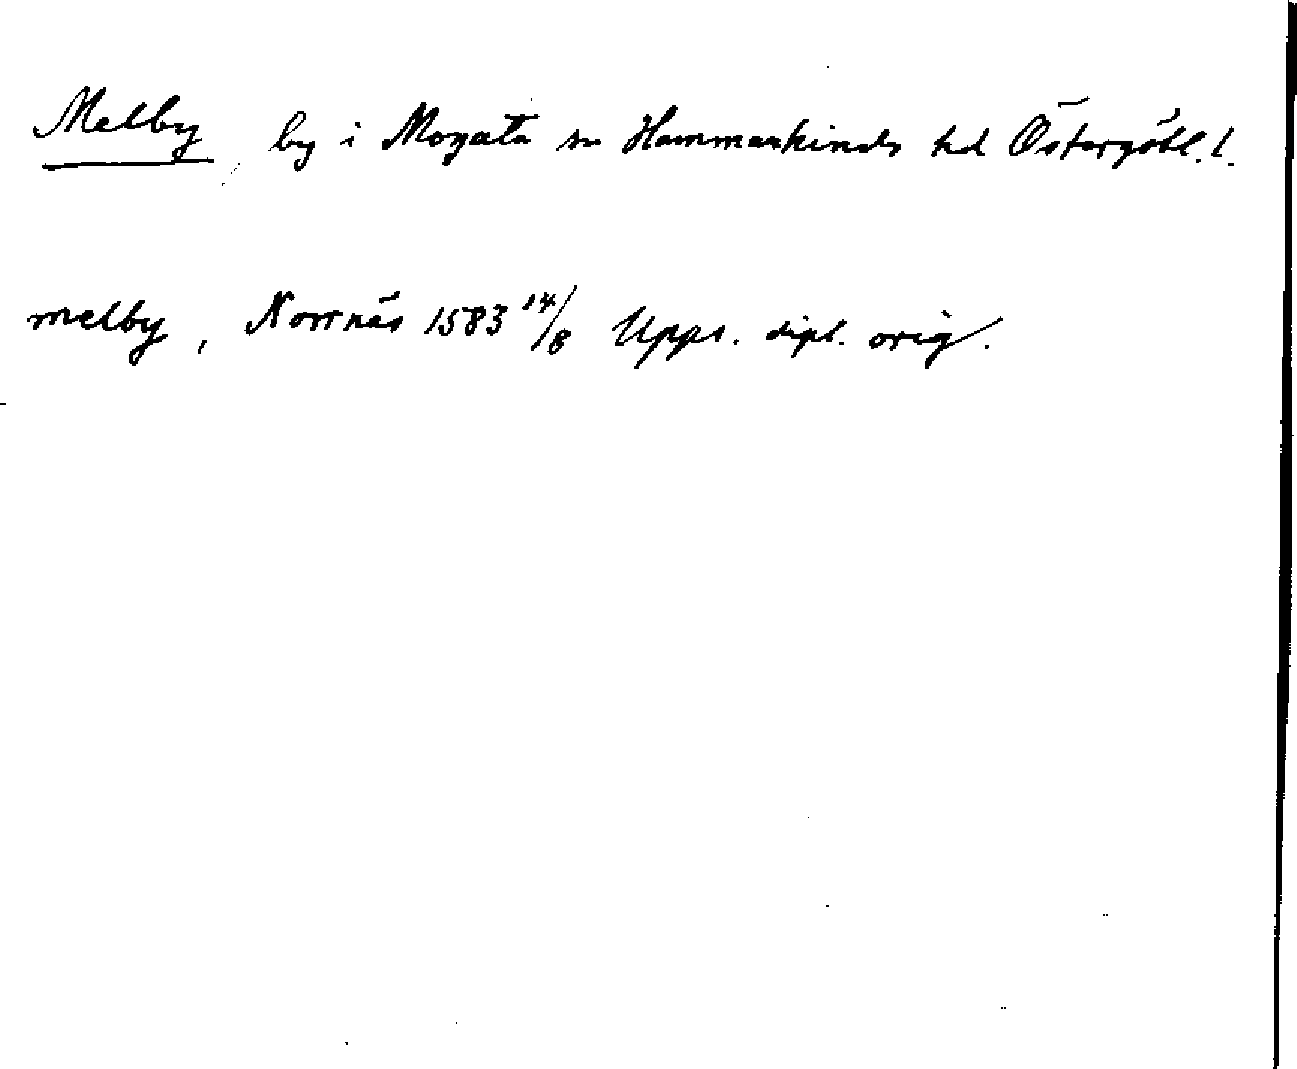 Melby, by i Mogata sn Hammarkinds hd Östergötl. l.
melby, Norrnäs 1583 14/8 Upps. dipl. orig.